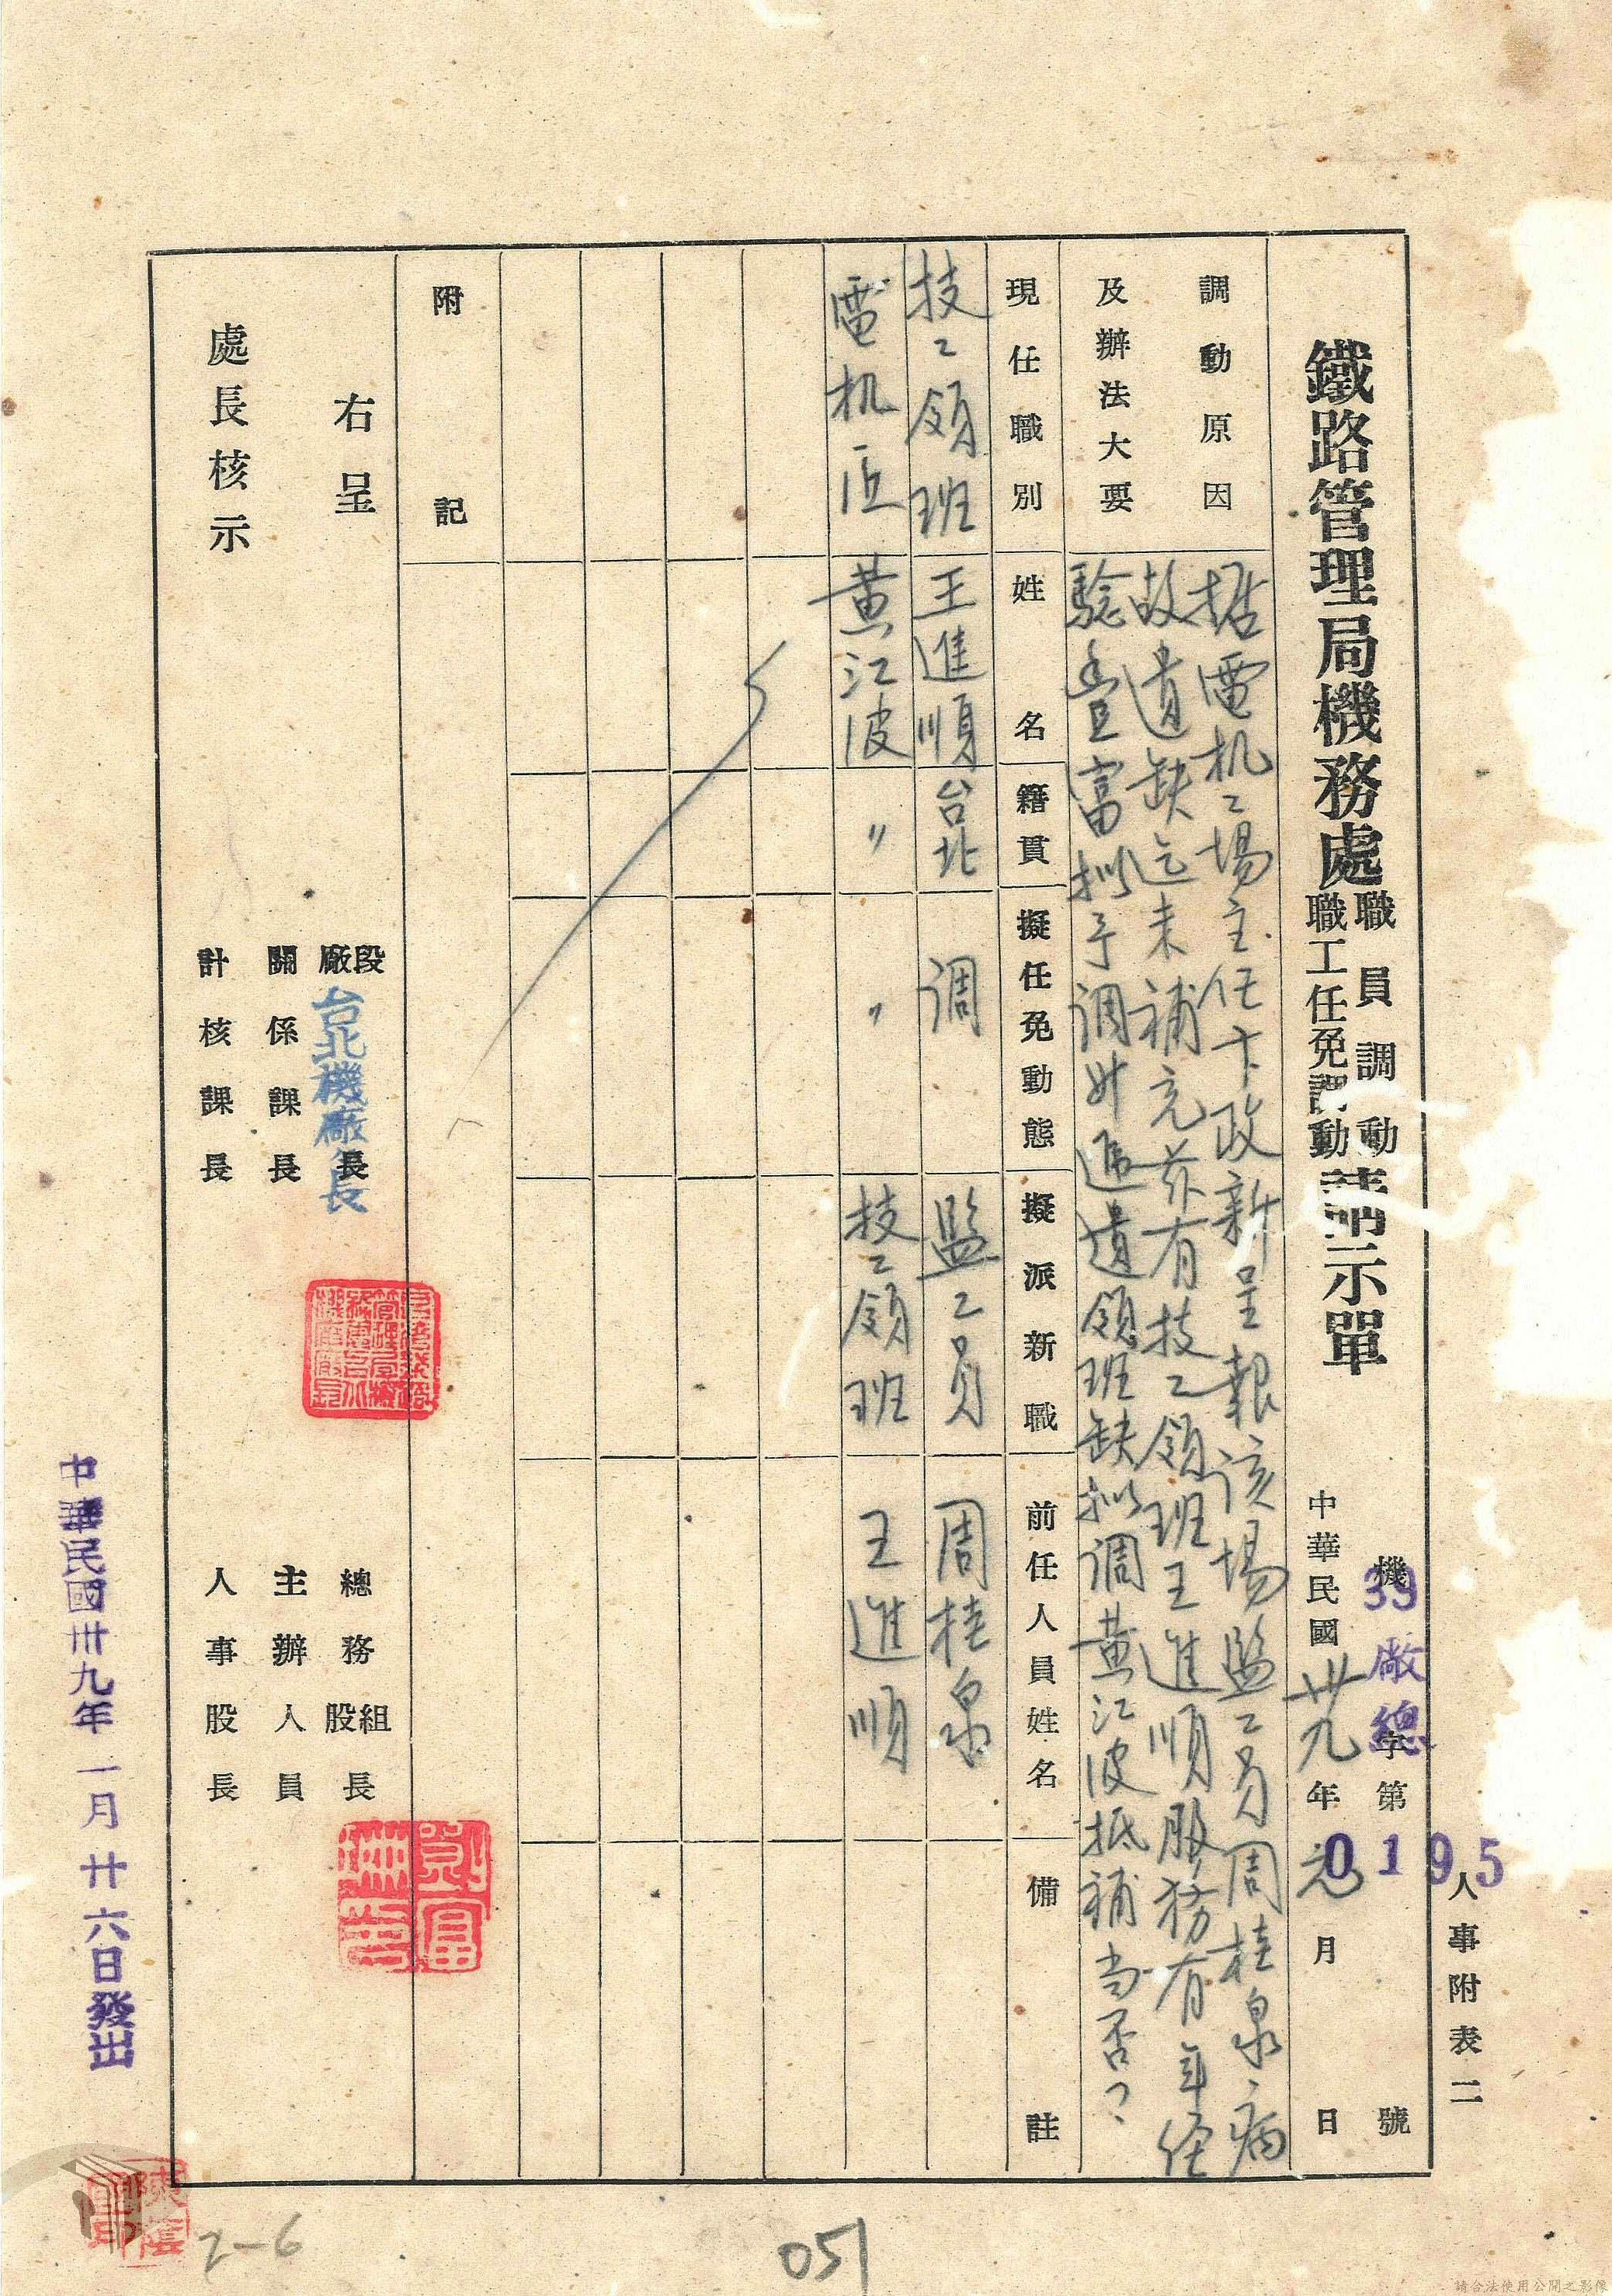 人事附表二
機39廠總字第0195號
鐵路管理局機務處職員調動
職工任免調動請示單
中華民國卅九年元月 日
調動原因
及辦法大要
据電机工場主任卞政新呈報該場監工員周桂泉病
故遺缺迄未補充茲有技工領班王進順服務有年經
驗豊富拟予調升遞遺領班缺拟調黃江波抵補当否?
現任職別 姓名 籍貫 擬任免動態 擬派新職 前任人員姓名 備註
技工領班 王進順 台北 调 監工員 周桂泉
電机匠 黃江波 〃 〃 技工領班 王進順
附記
右呈
處長核示
段廠長
台北機廠長
關係課長
計核課長
總務組股長
主辦人員
人事股長
中華民國卅九年一月廿六日發出
2-6
051
請合法使用公開之影像